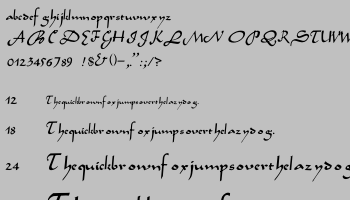 abcdef ghijklmnopqrstuvwxyz
ABCDEFGHIJKLMNOPQRSTUVW
0123456789 !$&()-,"":;/?
12 Thequickbrownf oxjumpsoverthelazydog.
18 Thequickbrownf oxjumpsoverthelazydog.
24 Thequickbrownf oxjumpsoverthelazydog